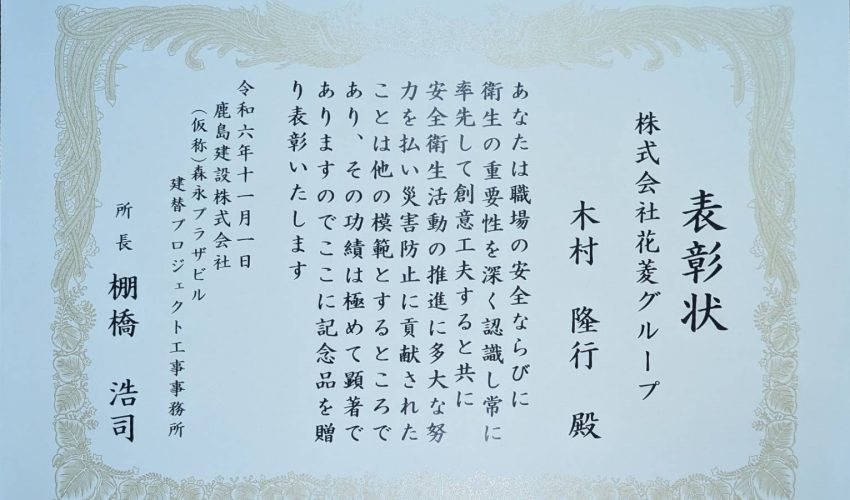 表彰状
株式会社花菱グループ
木村 隆行 殿
あなたは職場の安全ならびに
衛生の重要性を深く認識し常に
率先して創意工夫すると共に
安全衛生活動の推進に多大な努
力を払い災害防止に貢献された
ことは他の模範とするところで
あり、その功績は極めて顕著で
ありますのでここに記念品を贈
り表彰いたします
令和六年十一月一日
鹿島建設株式会社
(仮称)森永プラザビル
建替プロジェクト工事事務所
所長 棚橋 浩司